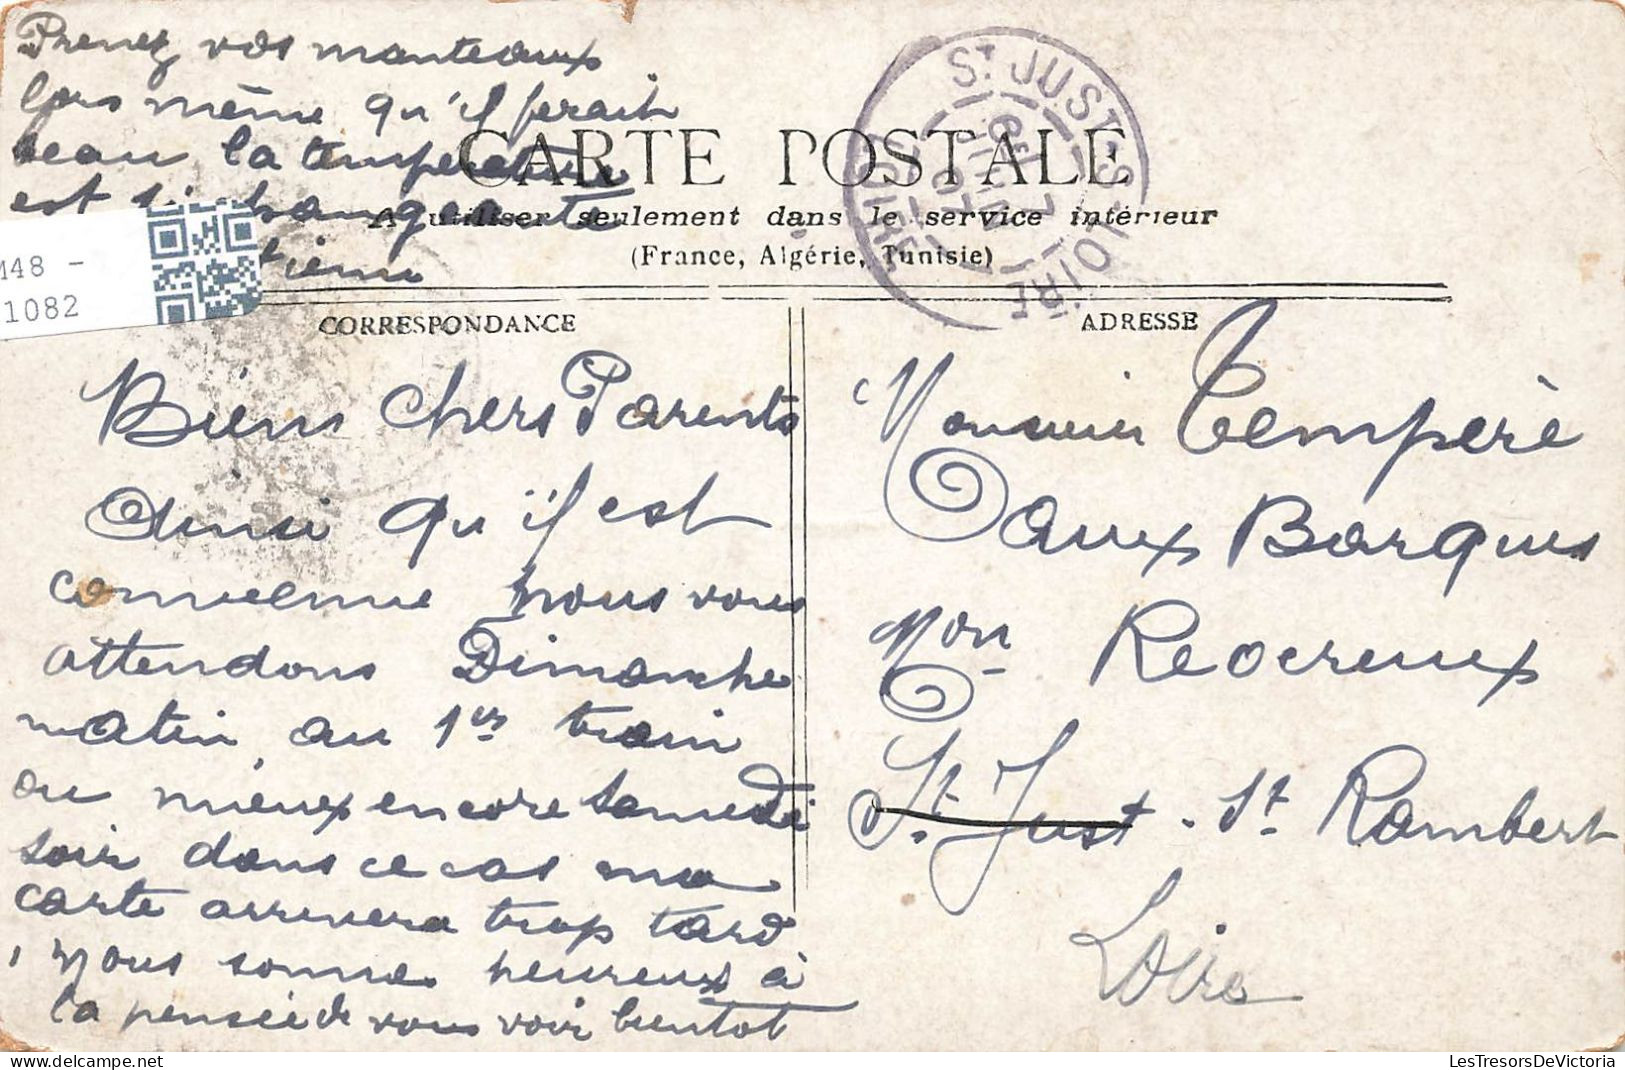 Prenez vos manteaux
lors même qu'il ferait
beau la température
est si changeante
CARTE POSTALE
A utiliser seulement dans le service intérieur
(France, Algérie, Tunisie)
ST JUST-S-LOIRE
LOIRE
M48 -
1082
CORRESPONDANCE
Biens chers Parents
Ainsi qu'il est
convenue nous vous
attendons Dimanche
matin au 1er train
ou mieux encore samedi
soir dans ce cas ma
carte arrivera trop tard
, Nous somme heureux à
la pensée de vous voir bientot
ADRESSE
Monsieur Tempère
aux Barques
Mon Reocreux
St Just . St Rambert
Loire
LesTresorsDeVictoria